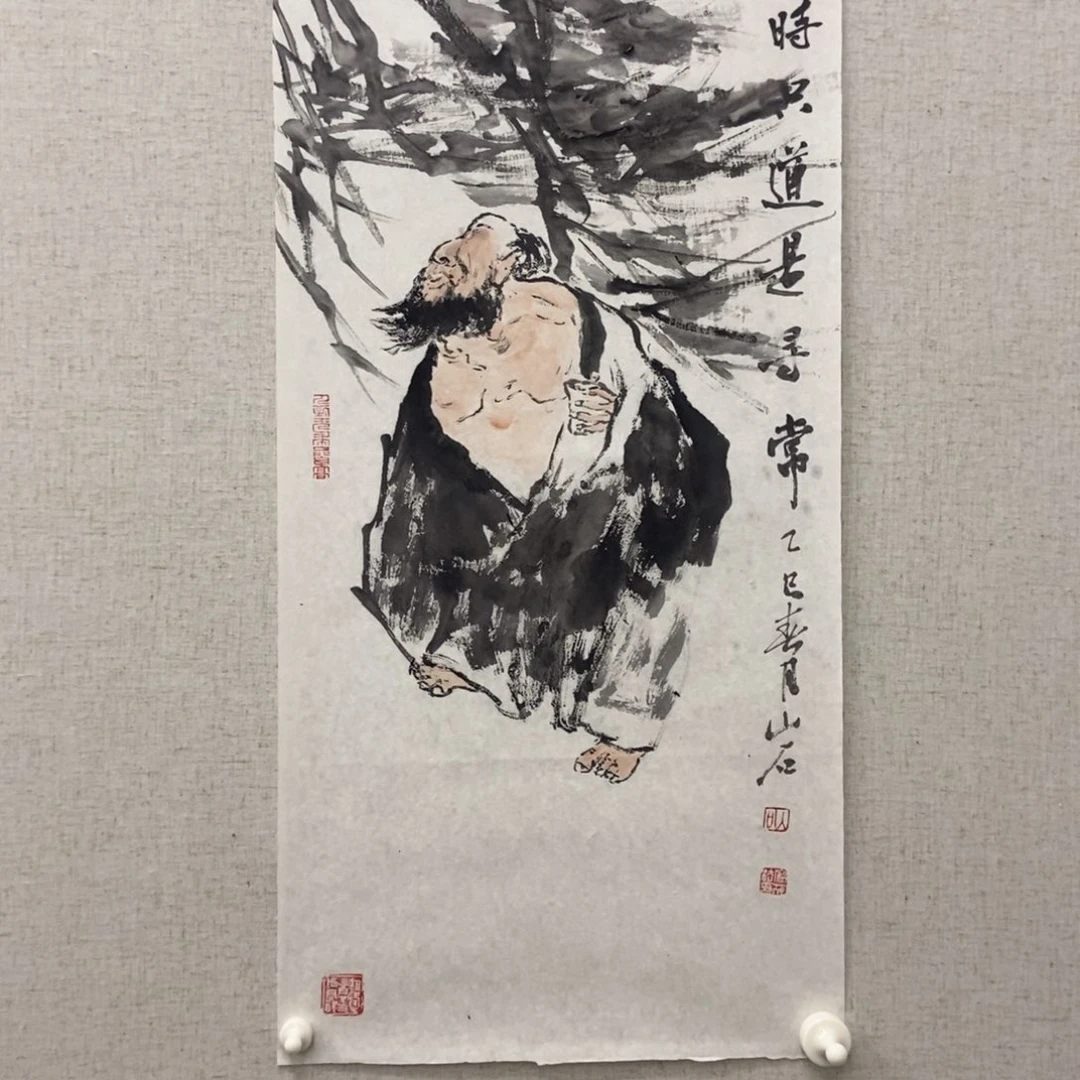 時只道是尋常
乙巳春月山石